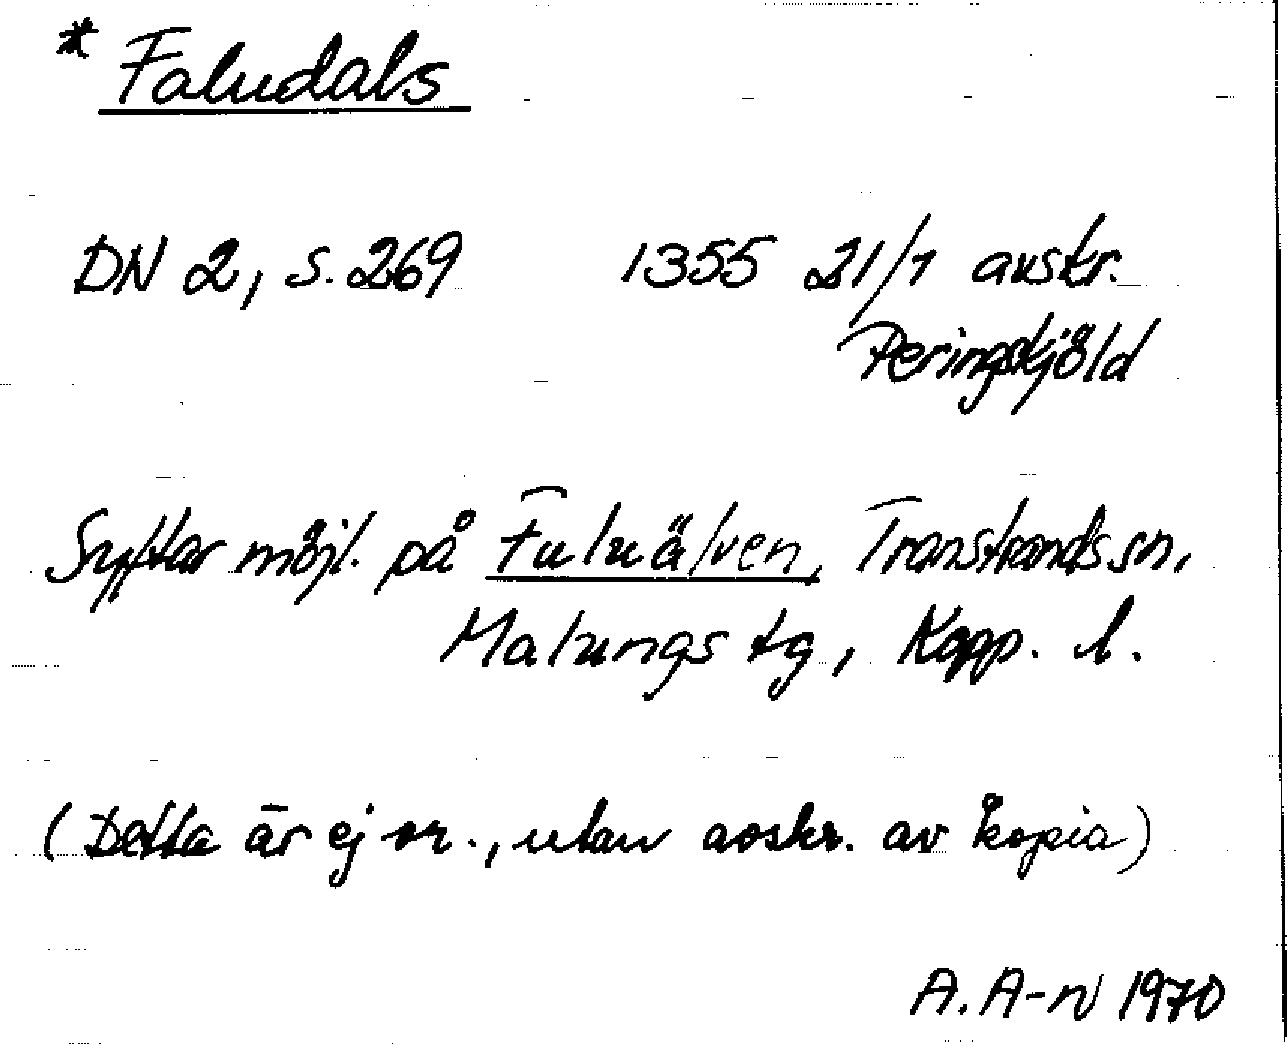 * Faludals
DN 2, s. 269 1355 21/1 avskr.
Peringskjöld
Syftar möjl. på Fuluälven, Transtrands sn,
Malungs tg, Kopp. l.
(Detta är ej or., utan avskr. av kopia)
A. A-n 1970